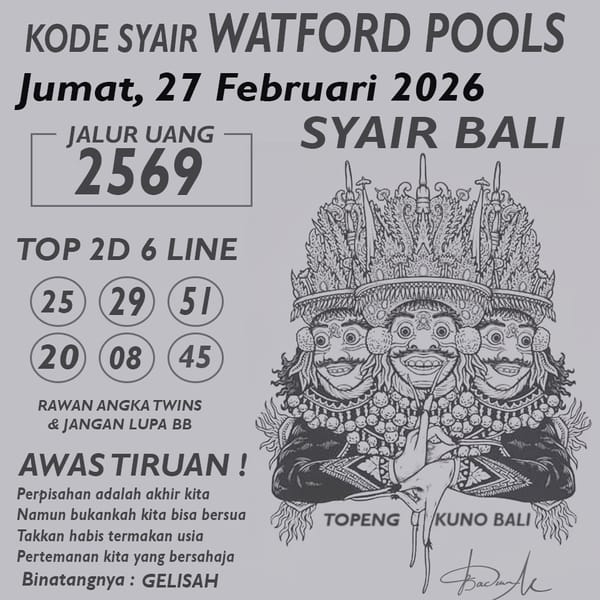 KODE SYAIR WATFORD POOLS
Jumat, 27 Februari 2026
SYAIR BALI
JALUR UANG
2569
TOP 2D 6 LINE
25 29 51
20 08 45
RAWAN ANGKA TWINS
& JANGAN LUPA BB
AWAS TIRUAN !
Perpisahan adalah akhir kita
Namun bukankah kita bisa bersua
Takkan habis termakan usia
Pertemanan kita yang bersahaja
Binatangnya : GELISAH
TOPENG KUNO BALI